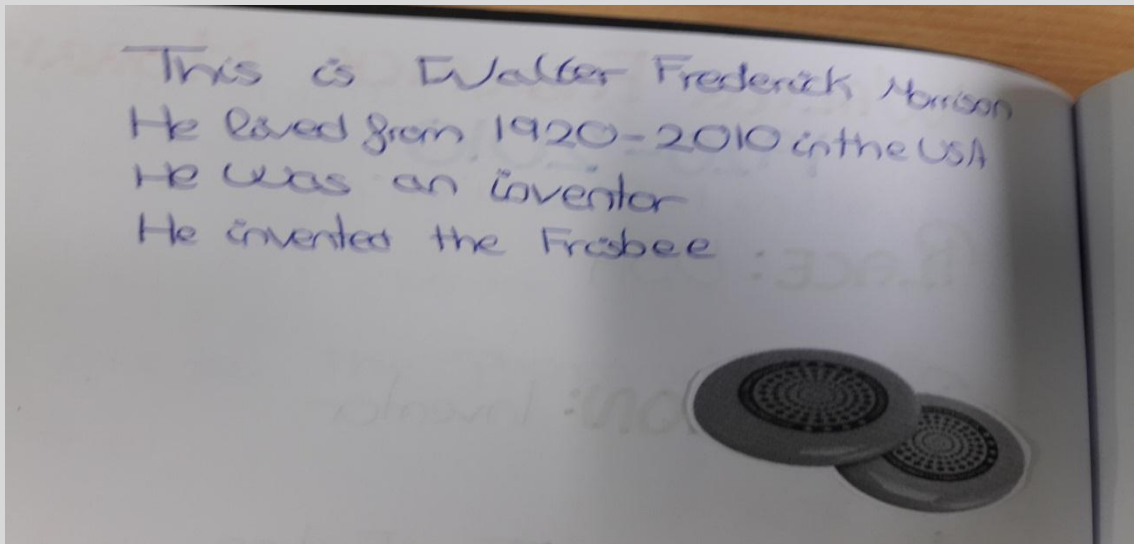 This is Walter Frederick Morrison
He lived from 1920-2010 in the USA
He was an inventor
He invented the Frisbee